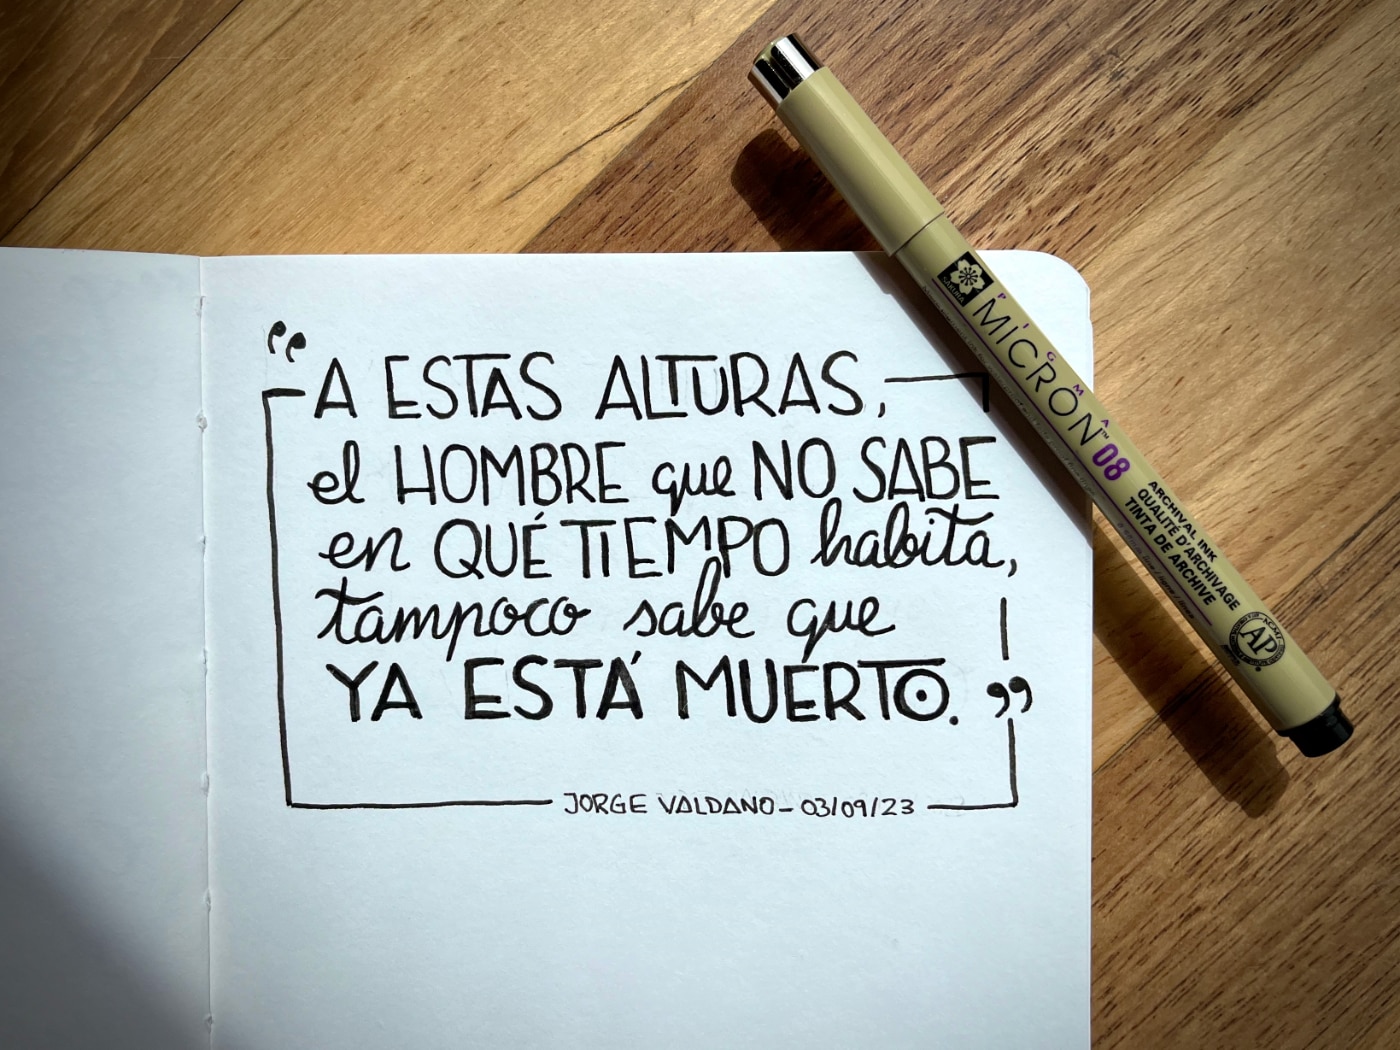 “A ESTAS ALTURAS,
el HOMBRE que NO SABE
en QUÉ TIEMPO habita,
tampoco sabe que
YA ESTÁ MUERTO.”
JORGE VALDANO - 03/09/23
SAKURA
PIGMA
MICRON™ 08
ARCHIVAL INK
QUALITÉ D'ARCHIVAGE
TINTA DE ARCHIVE
AP